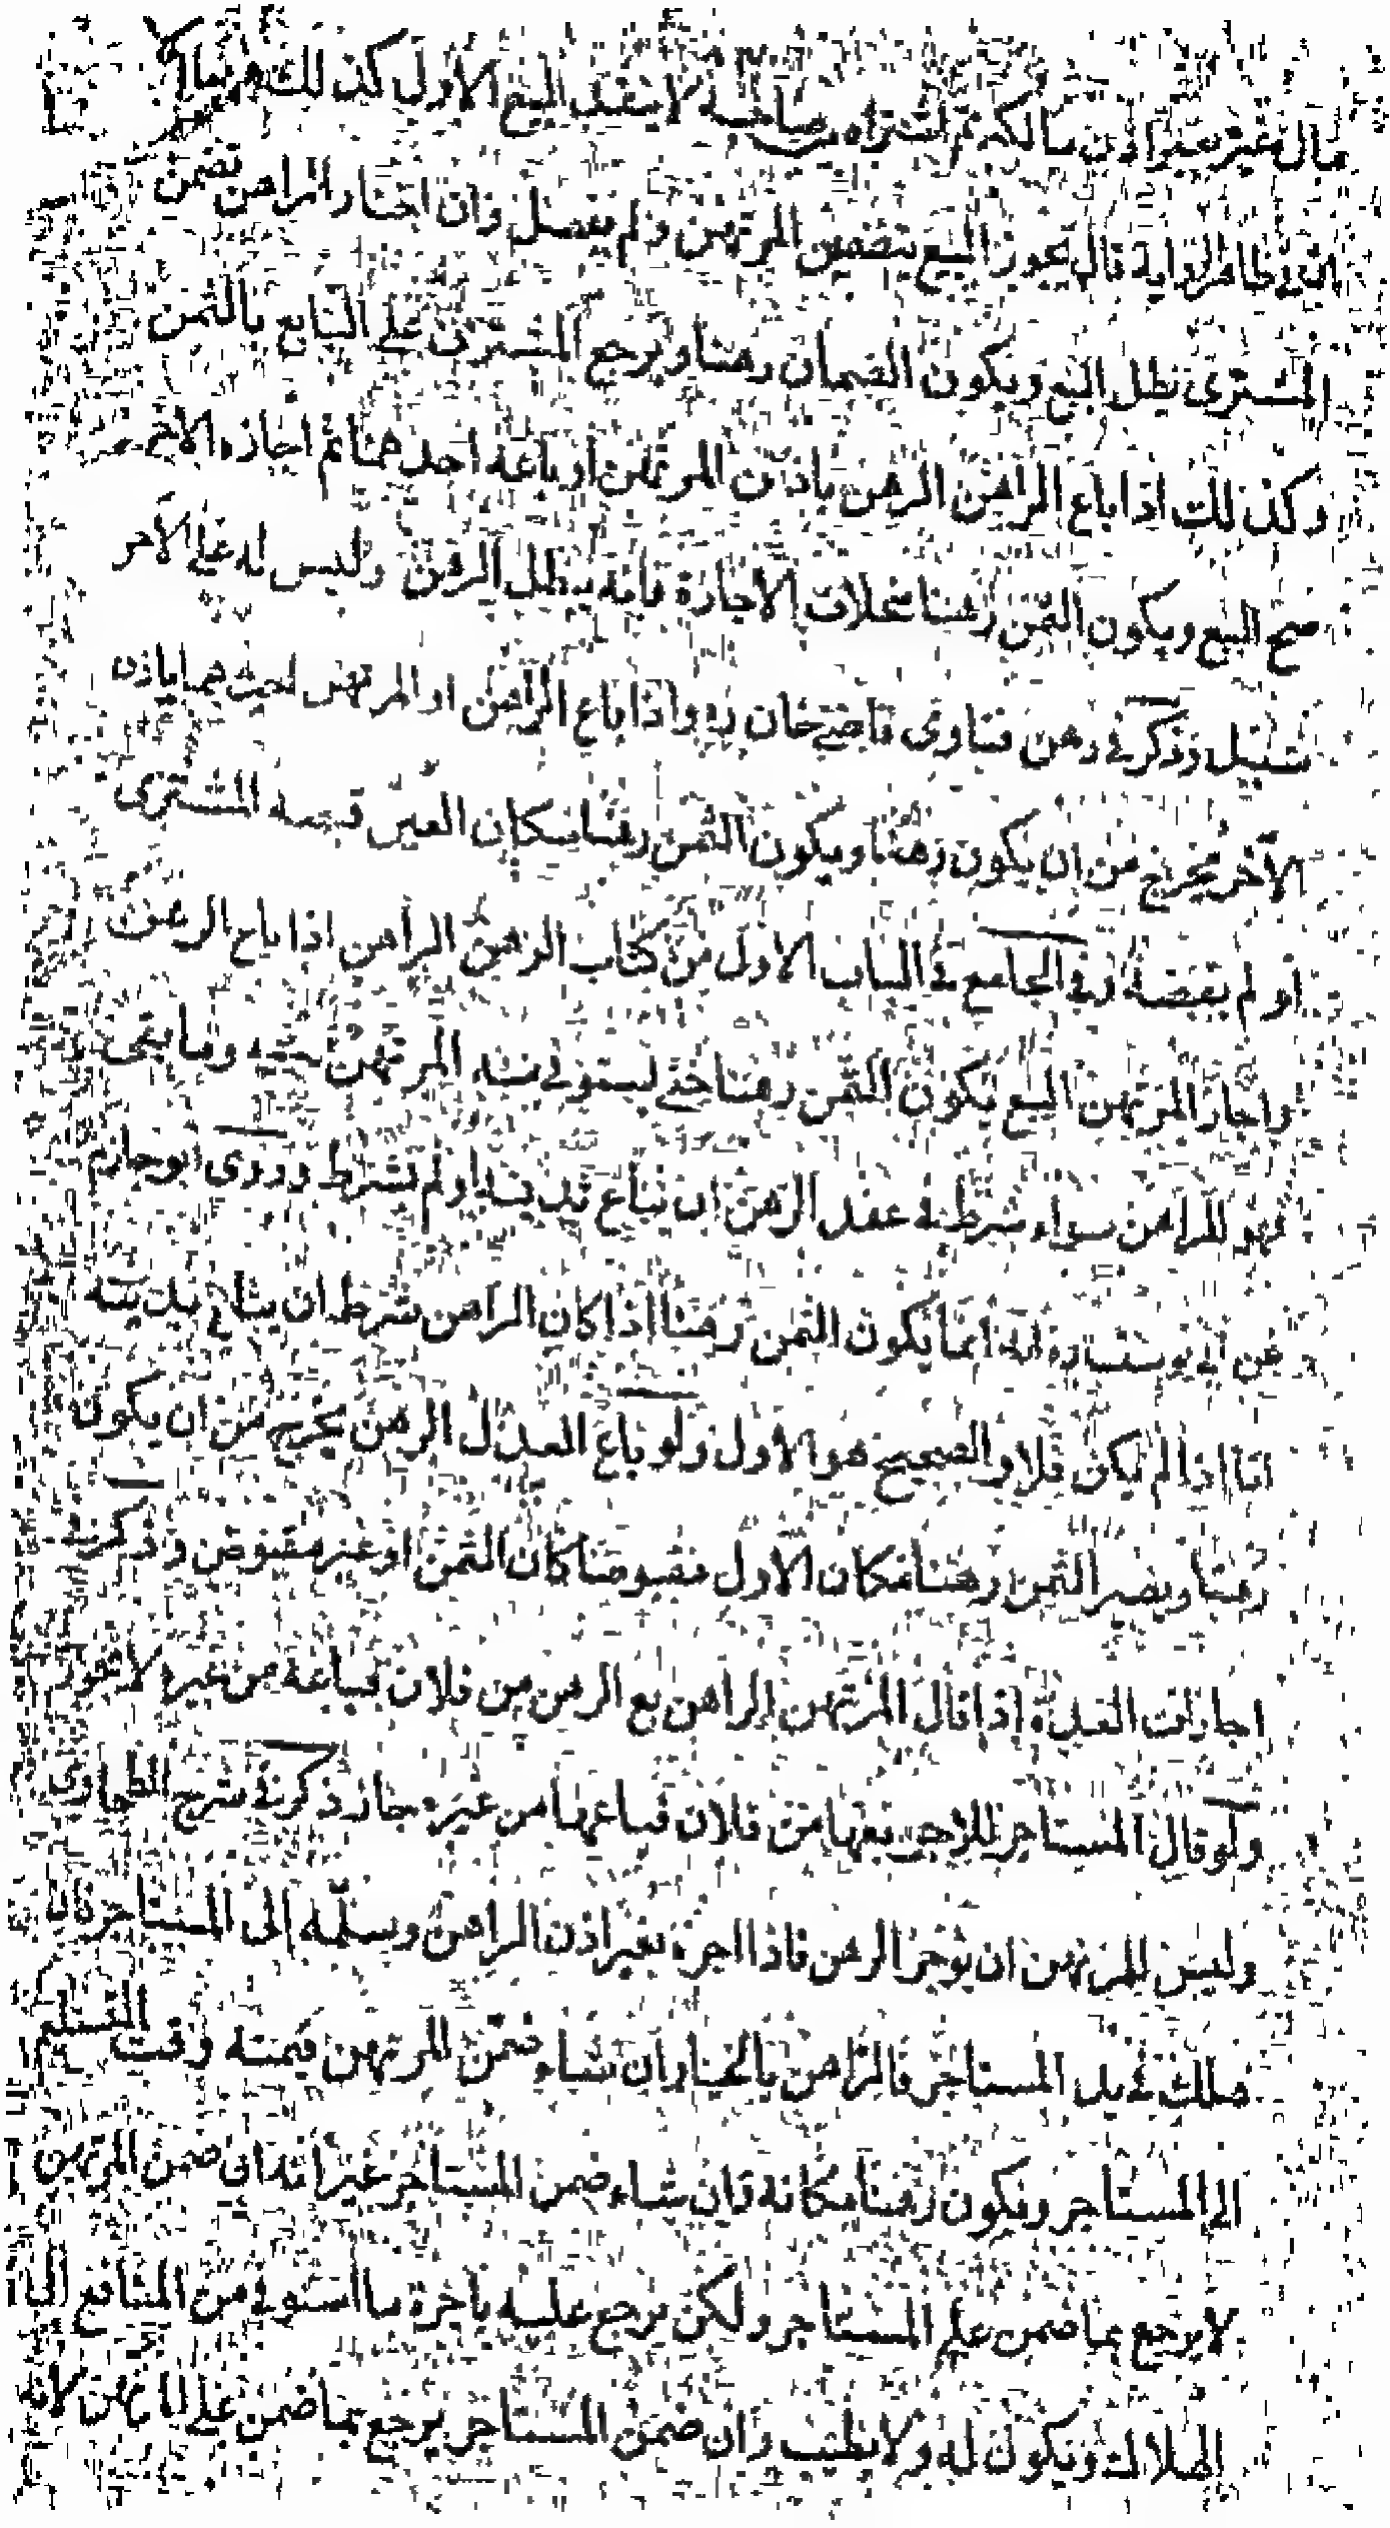 مال غيره بغير اذن مالكه ثم اشتراه من صاحبه لا ينفذ البيع الاول كذلك هاهنا الا
ان في ظاهر الرواية قال يجوز البيع بتضمين المرتهن ولم يفصل وان اختار الراهن تضمين
المشترى بطل البيع ويكون الضمان رهنا ويرجع المشترى على البايع بالثمن
وكذلك اذا باع الراهن الرهن باذن المرتهن او باعه احدهما ثم اجازه الاخر
صح البيع ويكون الثمن رهنا بخلاف الاجارة فانه يبطل الرهن وليس له على الاخر
سبيل وذكر في رهن فتاوى قاضي خان ره واذا باع الراهن او المرتهن باذن
الآخر يخرج من ان يكون رهنا ويكون الثمن رهنا مكان العين قبضه المشترى
او لم يقبضه وفي الجامع في الباب الاول من كتاب الرهن الراهن اذا باع الرهن
واجاز المرتهن البيع يكون الثمن رهنا حتى يستوفي منه المرتهن دينه وما بقى
فهو للراهن سواء شرط في عقد الرهن ان يباع بدينه او لم يشترط وروى ابو حازم
عن ابي يوسف ره انه انما يكون الثمن رهنا اذا كان الراهن شرط ان يباع بدينه
اما اذا لم يكن فلا والصحيح هو الاول ولو باع العدل الرهن يخرج من ان يكون
رهنا ويصير الثمن رهنا مكان الاول مقبوضا كان الثمن او غير مقبوض وذكر في
اجارات العدة اذا قال المرتهن للراهن بع الرهن من فلان فباعه من غيره لا يجوز
ولو قال المستاجر للاجر بعها من فلان فباعها من غيره جاز ذكر في شرح الطحاوى
وليس للمرتهن ان يوجر الرهن فاذا اجره بغير اذن الراهن وسلمه الى المستاجر فان
هلك في يد المستاجر فالراهن بالخيار ان شاء ضمن المرتهن قيمته وقت التسليم
الى المستاجر ويكون رهنا مكانه وان شاء ضمن المستاجر غير انه ان ضمن المرتهن
لا يرجع بما ضمن على المستاجر ولكن يرجع عليه باجرة ما استوفي من المنافع الى
الهلاك ويكون له ولا يطيب وان ضمن المستاجر يرجع بما ضمن على المرتهن لانه